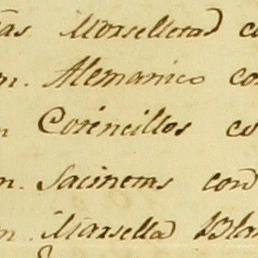 as Morselleras co
m. Alemanico co
n Corencillos co
n. Sacineras con
n. Marsella Bla